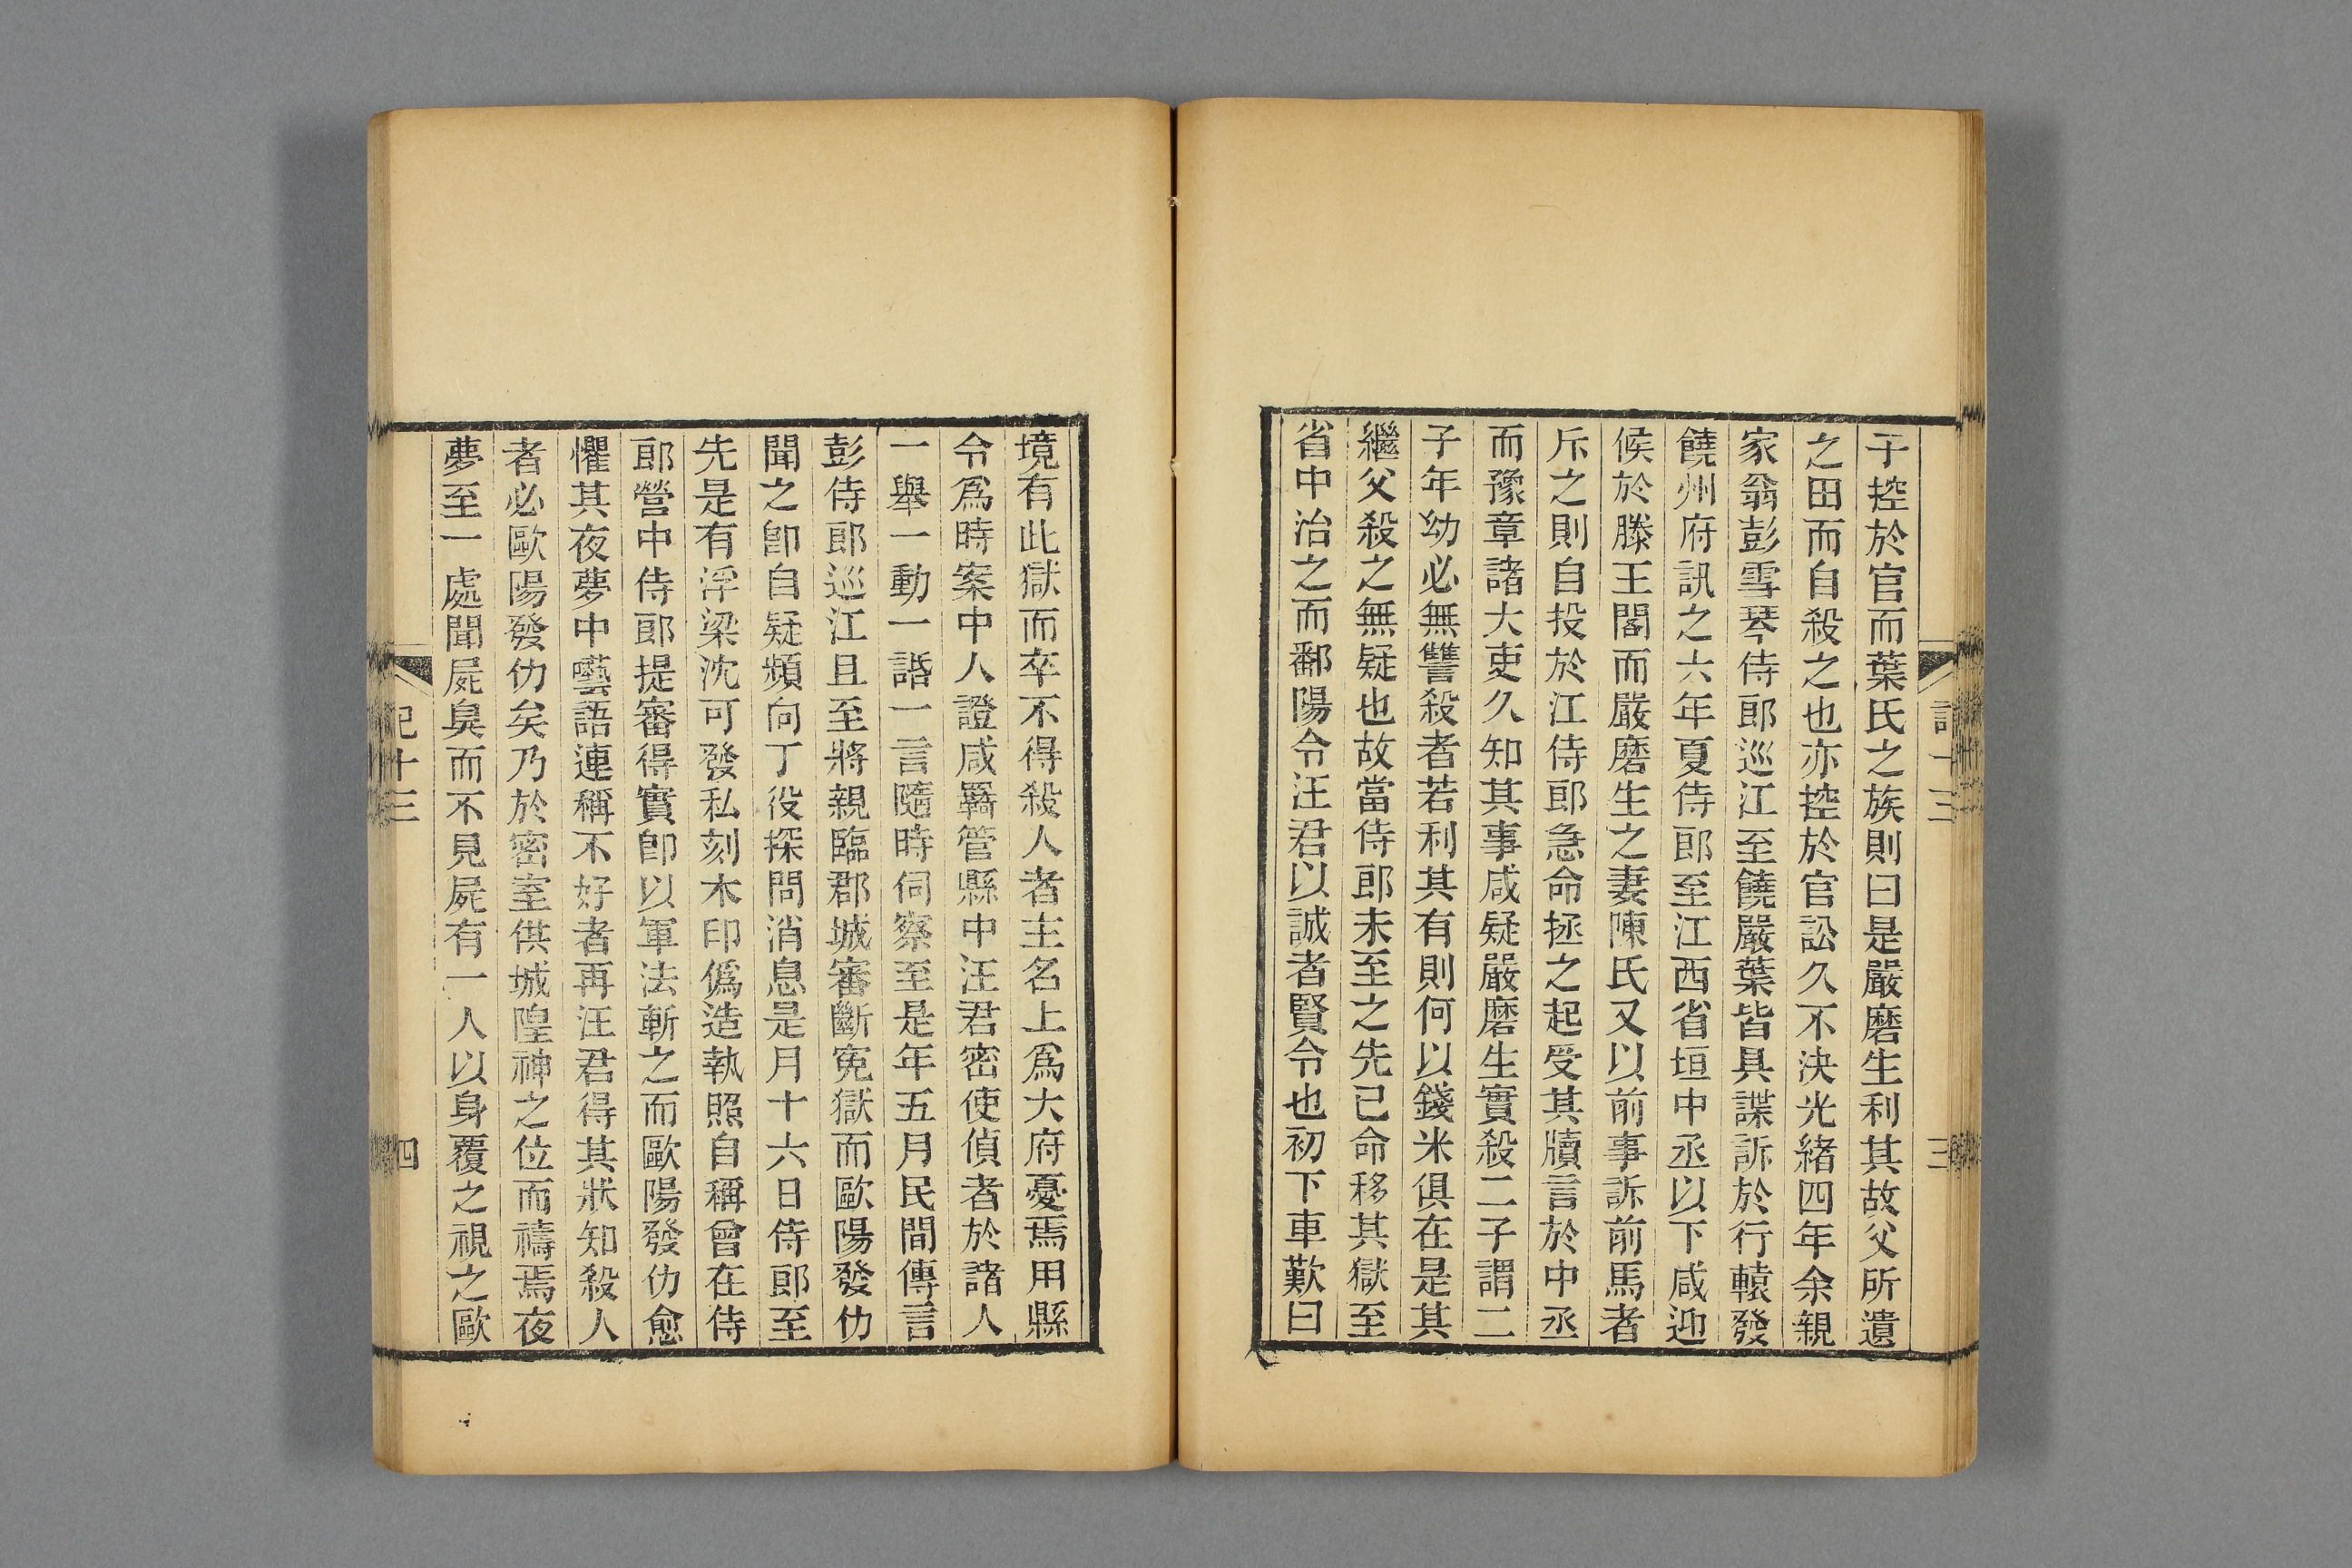 子控於官而葉氏之族則曰是嚴磨生利其故父所遺
之田而自殺之也亦控於官訟久不決光緒四年余親
家翁彭雪琴侍郎巡江至饒嚴葉皆具諜訴於行轅發
饒州府訊之六年夏侍郎至江西省垣中丞以下咸迎
候於滕王閣而嚴磨生之妻陳氏又以前事訴前馬者
斥之則自投於江侍郎急命拯之起受其牘言於中丞
而豫章諸大吏久知其事咸疑嚴磨生實殺二子謂二
子年幼必無讐殺者若利其有則何以錢米俱在是其
繼父殺之無疑也故當侍郎未至之先已命移其獄至
省中治之而鄱陽令汪君以誠者賢令也初下車歎曰
三
境有此獄而卒不得殺人者主名上爲大府憂焉用縣
令爲時案中人證咸羈管縣中汪君密使偵者於諸人
一舉一動一諧一言隨時伺察至是年五月民間傳言
彭侍郎巡江且至將親臨郡城審斷寃獄而歐陽發仂
聞之卽自疑頻向丁役探問消息是月十六日侍郎至
先是有浮梁沈可發私刻木印僞造執照自稱曾在侍
郎營中侍郎提審得實卽以軍法斬之而歐陽發仂愈
懼其夜夢中囈語連稱不好者再汪君得其狀知殺人
者必歐陽發仂矣乃於密室供城隍神之位而禱焉夜
夢至一處聞屍臭而不見屍有一人以身覆之視之歐
記十三
四